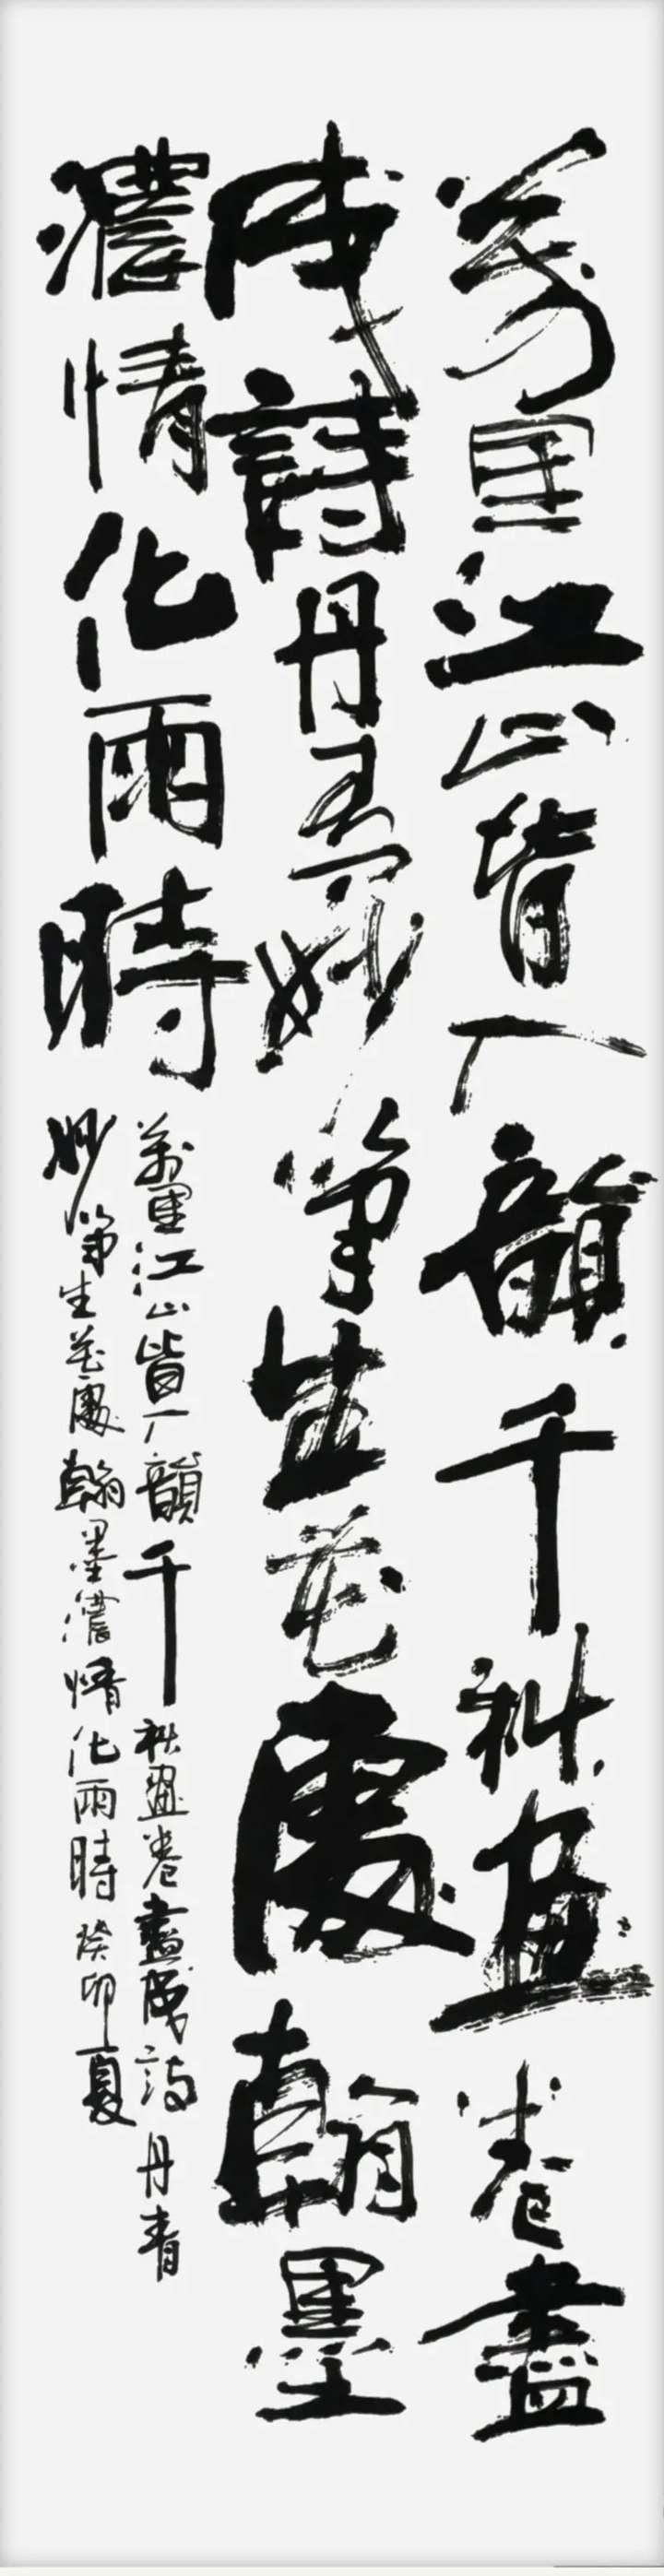 萬里江山皆入韻千秋畫卷盡
成詩丹青妙筆生花處翰墨
濃情化雨時
萬里江山皆入韻千秋畫卷盡成詩丹青
妙筆生花處翰墨濃情化雨時癸卯夏